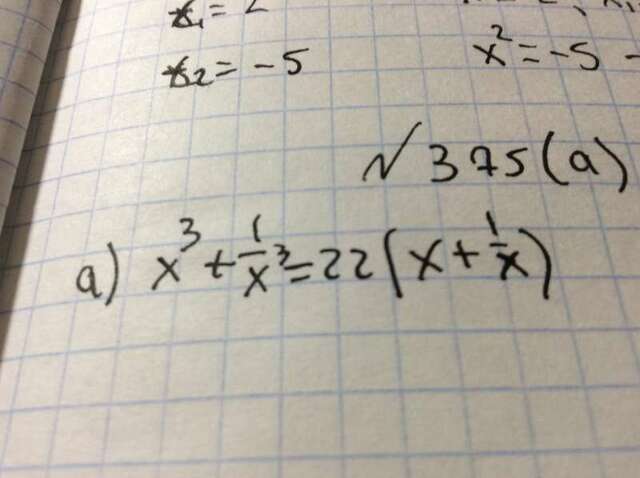 x₁ = 2
x₂ = -5
x² = -5 -
№ 375(a)
a) x³ + 1/x³ = 22(x + 1/x)